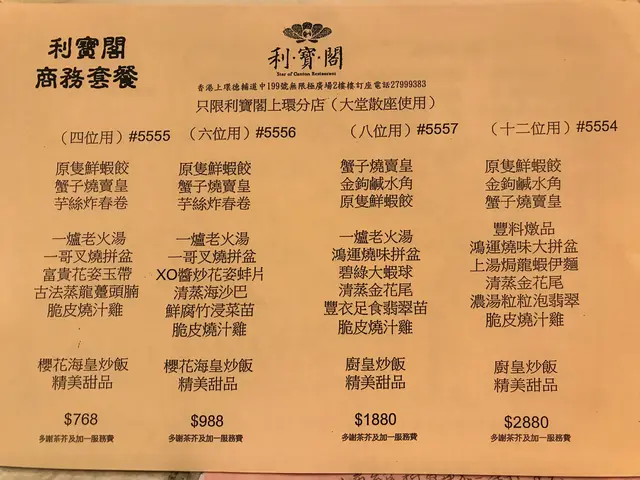 利寶閣
商務套餐
利·寶·閣
Star of Canton Restaurant
香港上環德輔道中199號無限極廣場2樓樓訂座電話27999383
只限利寶閣上環分店（大堂散座使用）
（四位用）#5555
原隻鮮蝦餃
蟹子燒賣皇
芋絲炸春卷
一爐老火湯
一哥叉燒拼盆
富貴花姿玉帶
古法蒸龍躉頭腩
脆皮燒汁雞
櫻花海皇炒飯
精美甜品
$768
多謝茶芥及加一服務費
（六位用）#5556
原隻鮮蝦餃
蟹子燒賣皇
芋絲炸春卷
一爐老火湯
一哥叉燒拼盆
XO醬炒花姿蚌片
清蒸海沙巴
鮮腐竹浸菜苗
脆皮燒汁雞
櫻花海皇炒飯
精美甜品
$988
多謝茶芥及加一服務費
（八位用）#5557
蟹子燒賣皇
金鉤鹹水角
原隻鮮蝦餃
一爐老火湯
鴻運燒味拼盆
碧綠大蝦球
清蒸金花尾
豐衣足食翡翠苗
脆皮燒汁雞
廚皇炒飯
精美甜品
$1880
多謝茶芥及加一服務費
（十二位用）#5554
原隻鮮蝦餃
金鉤鹹水角
蟹子燒賣皇
豐料燉品
鴻運燒味大拼盆
上湯焗龍蝦伊麵
清蒸金花尾
濃湯粒粒泡翡翠
脆皮燒汁雞
廚皇炒飯
精美甜品
$2880
多謝茶芥及加一服務費